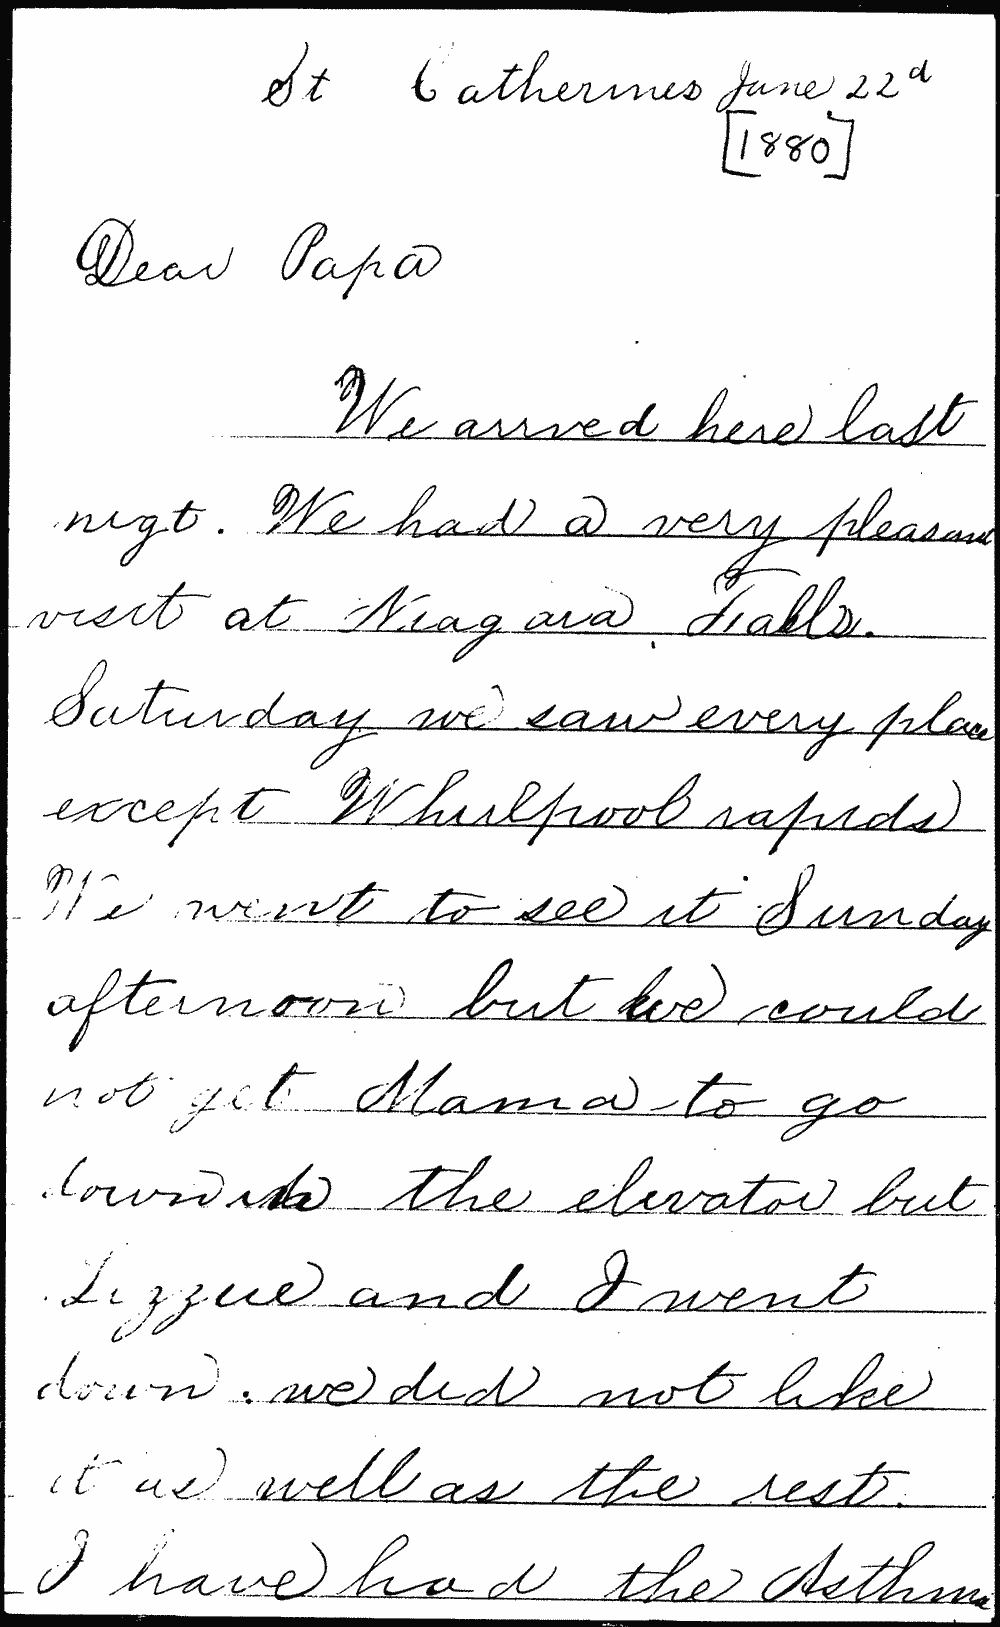 St Catherines June 22d
[1880]
Dear Papa
We arrived here last
nigt. We had a very pleasant
visit at Niagara Falls.
Saturday we saw every place
except Whirlpool rapids
We went to see it Sunday
afternoon but we could
not get Mama to go
down in the elevator but
Lizzie and I went
down. we did not like
it as well as the rest.
I have had the Asthma